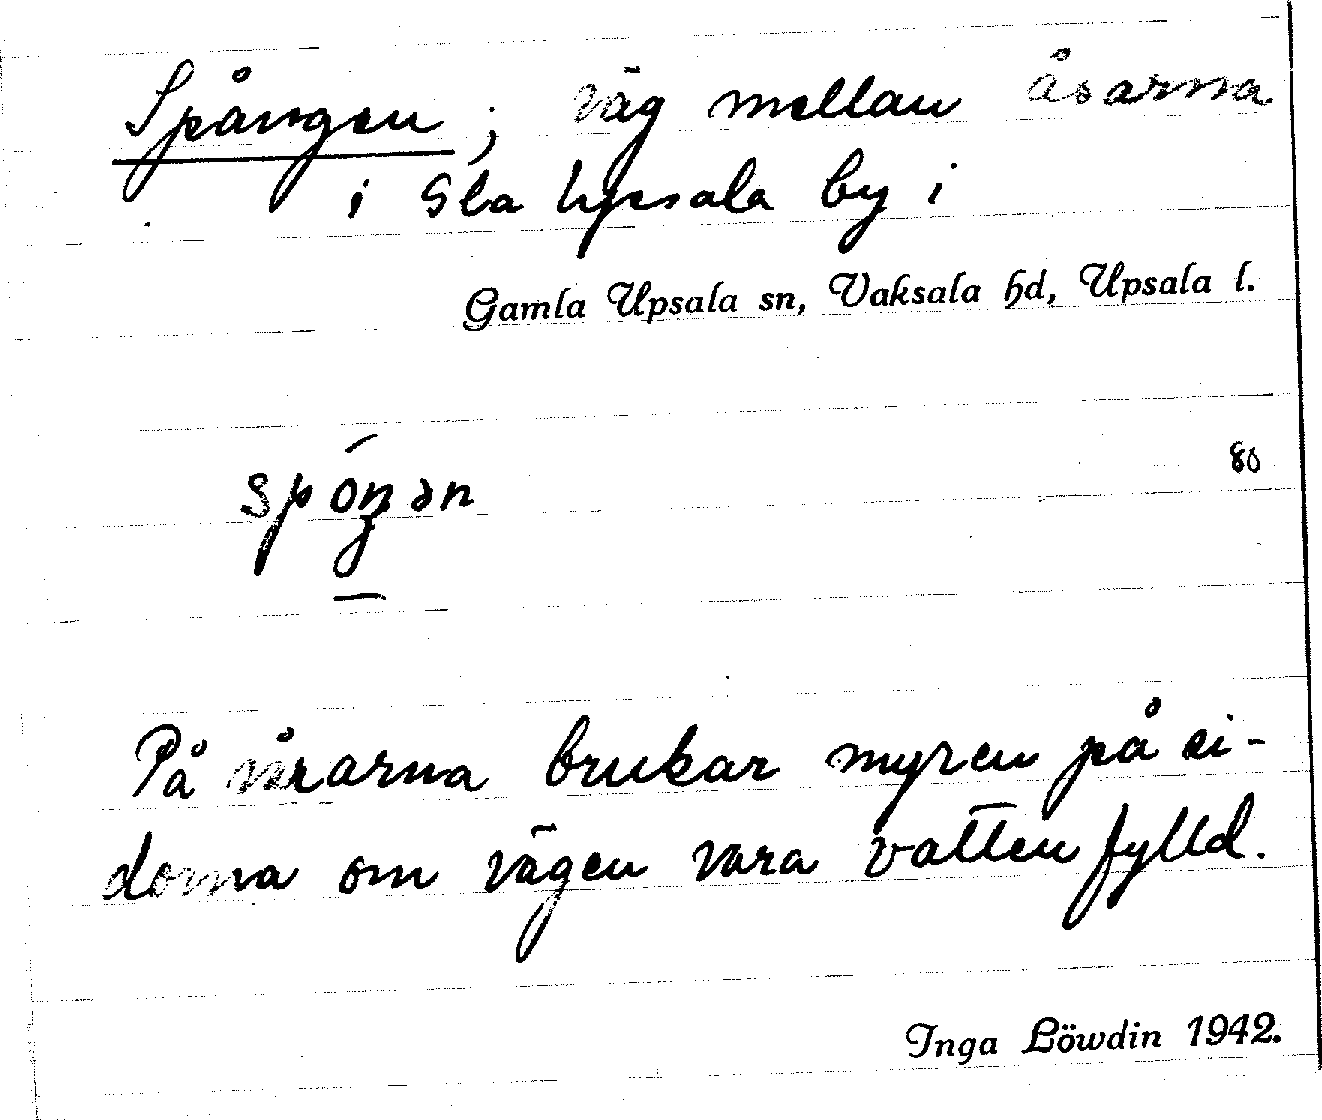 Spången; väg mellan åsarna
i Gla Upsala by i
Gamla Upsala sn, Vaksala hd, Upsala l.
80
spóŋən
På vårarna brukar myren på si-
dorna om vägen vara vattenfylld.
Inga Löwdin 1942.